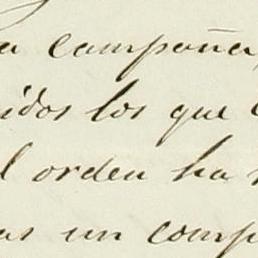 a campaña,
idos los que
l orden ha
as un comp